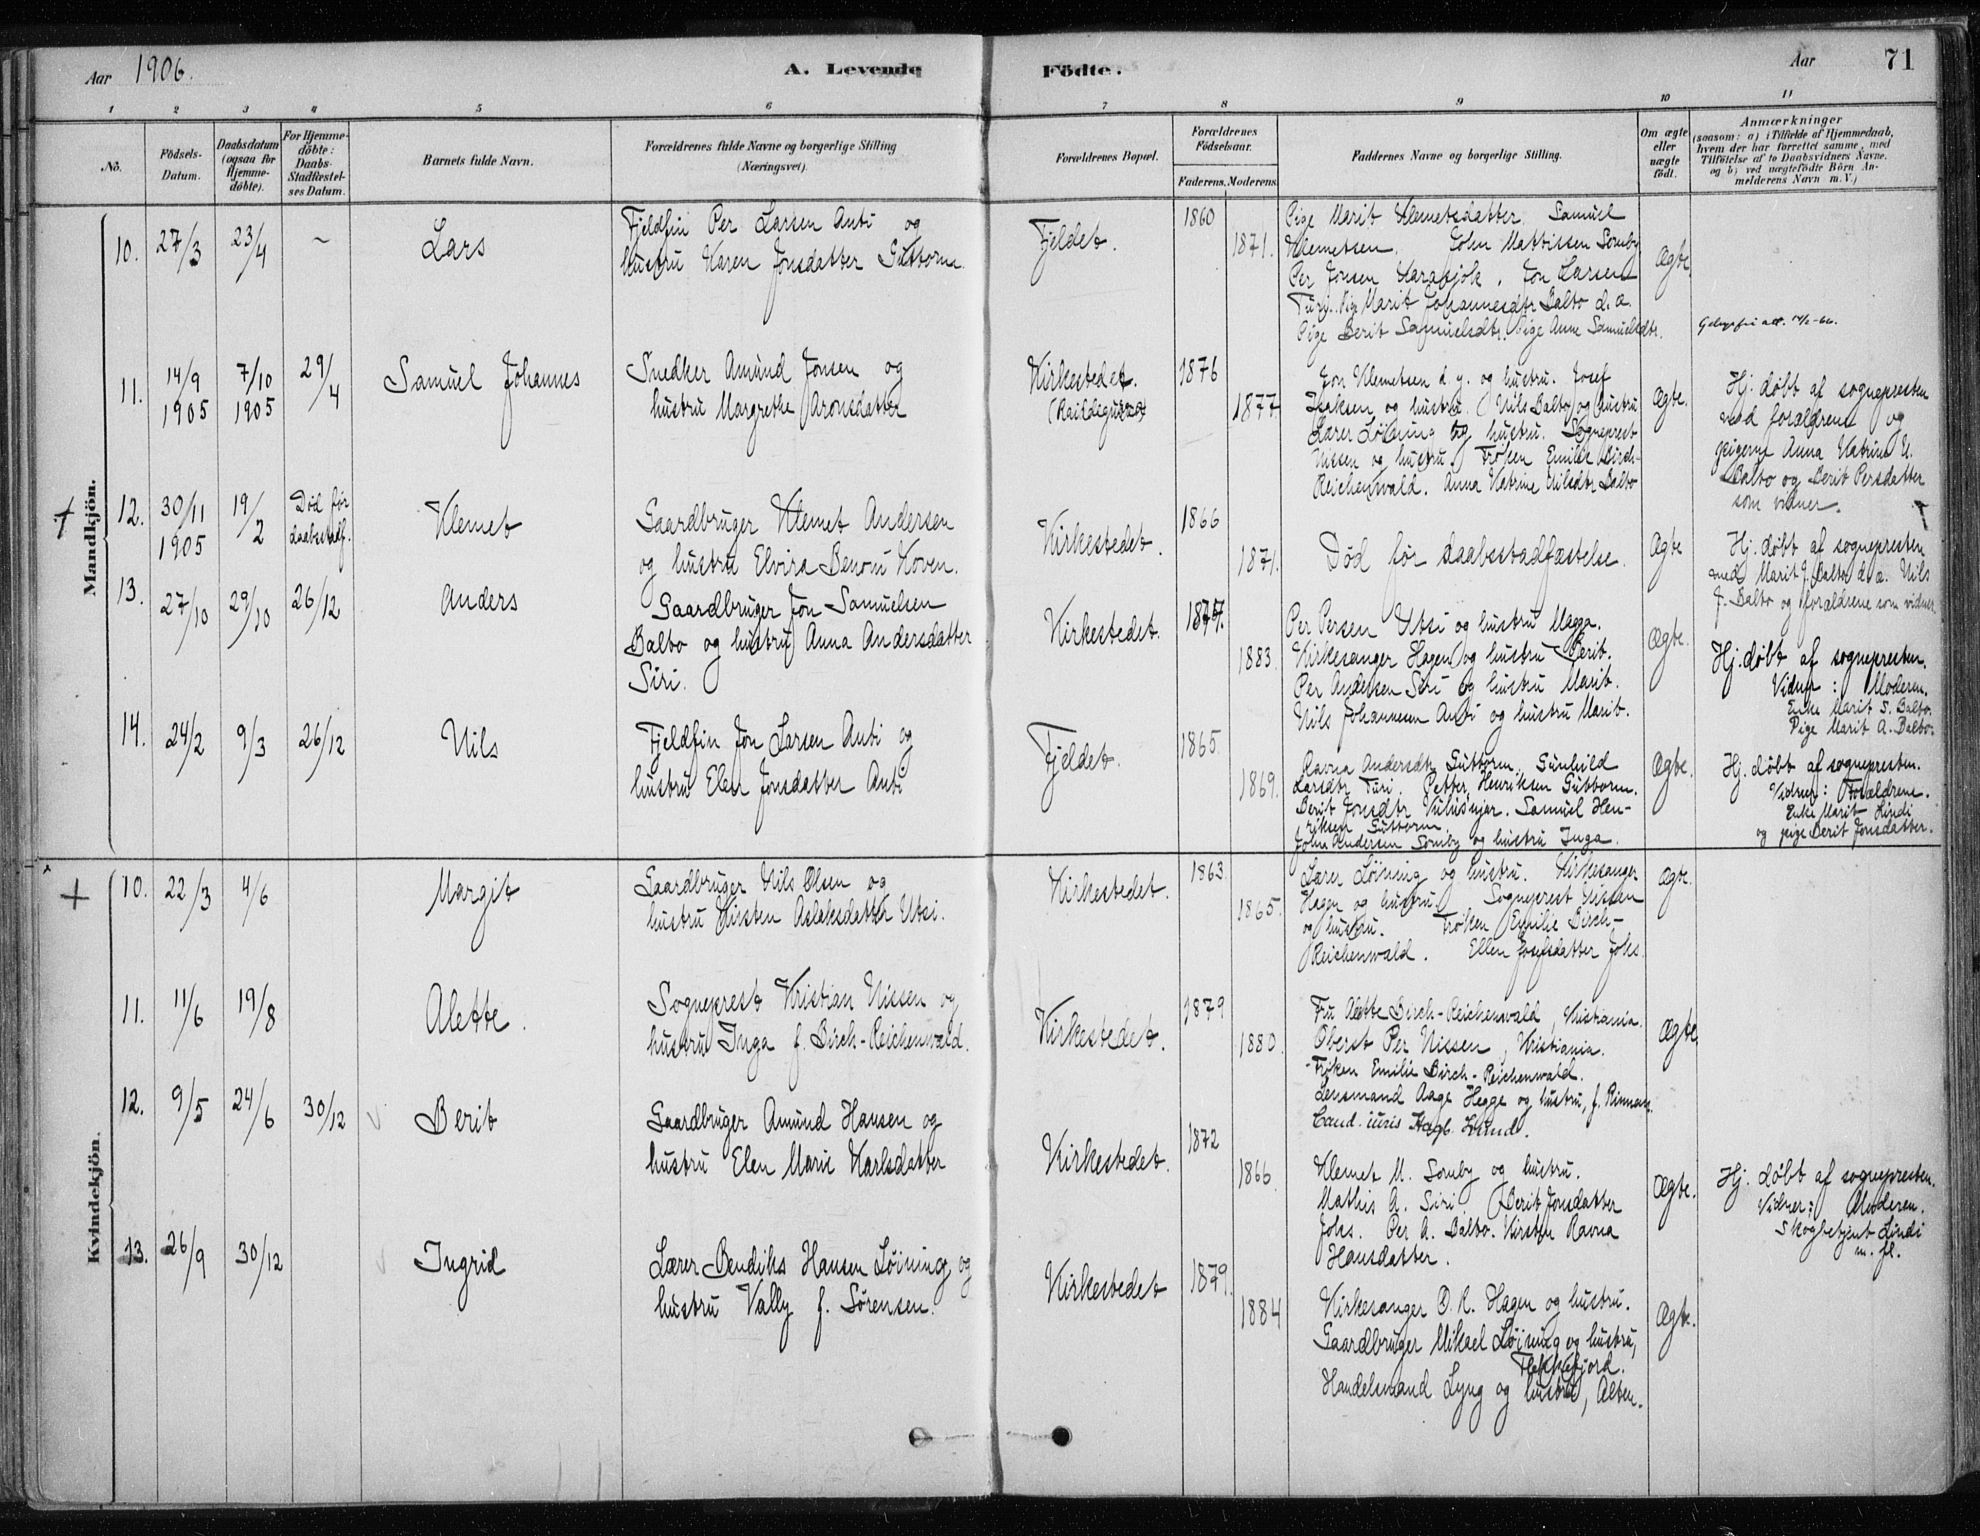 Aar 1906.
A. Levende Födte.
Aar
71
1 2 3 4 5 6 7 8 9 10 11
No.
Födsels-Datum.
Daabsdatum (ogsaa for Hjemmedöbte).
For Hjemmedöbte: Daabs-Stadfæstelses Datum.
Barnets fulde Navn.
Forældrenes fulde Navne og borgerlige Stilling (Næringsvei).
Forældrenes Bopæl.
Forældrenes Födselsaar.
Faderens. Moderens.
Faddernes Navne og borgerlige Stilling.
Om ægte eller uægte födt.
Anmærkninger
(saasom: a) i Tilfælde af Hjemmedaab, hvem der har forrettet samme, med Tilföielse af to Daabsvidners Navne. og b) ved uægtefödte Börn Anmelderens Navn m. V.)
Mandkjön.
10. 27/3 23/4 ~ Lars
Fjeldfin Per Larsen Anti og
hustru Karen Jonsdatter Guttorm.
Fjeldet.
1860
1871.
Pige Marit Klemetsdatter Samuel
Klemetsen. John Mattissen Somby
Per Jonsen Karasjok. Jon Larsen
Turi. Pige Marit Johannesdtr Balto d. a.
Pige Berit Samuelsdtr. Pige Anne Samuelsdtr.
Ægte.
11. 14/9 1905 7/10 1905 29/4 Samuel Johannes
Snedker Amund Jonsen og
hustru Margrethe Aronsdatter
Kirkestedet.
1876
1877
Jon Klemetsen d. y. og hustru. Josef
Isaksen og hustru. Nils Balto og hustru
Lærer Løining og hustru. Sogneprest
Nissen og hustru. Frøken Emilie Birch-
Reichenwald. Anna Katrine Nilsdtr Balto
Ægte.
Hj. døbt af sognepresten
med forældrene og
pigerne Anna Katrine N.
Balto og Berit Persdatter
som vidner.
12. 30/11 1905 19/2 Død før daabsstadf. Klemet
Gaardbruger Klemet Andersen
og hustru Elvira Benoni Koven.
Kirkestedet.
1866
1871.
Død før daabsstadfæstelse.
Ægte
Hj. døbt af sognepresten
med Marit J. Balto d. æ. Nils
J. Balto og forældrene som vidner.
13. 27/10 29/10 26/12 Anders
Gaardbruger Jon Samuelsen
Balto og hustru Anna Andersdatter
Siri.
Kirkestedet.
1877.
1883.
Per Persen Utsi og hustru Magga.
Kirkesanger Hagen og hustru Berit.
Per Andersen Siri og hustru Marit.
Nils Johannesen Anti og hustru Marit.
Ægte.
Hj. døbt af sognepresten.
Vidner: Moderen.
Enke Marit S. Balto.
Pige Marit A. Balto.
14. 24/2 9/3 26/12 Nils
Fjeldfin Jon Larsen Anti og
hustru Elen Jonsdatter Anti
Fjeldet.
1865.
1869.
Ravna Andersdtr Guttorm. Gunhild
Larsdtr Turi. Petter Henriksen Guttorm.
Berit Jonsdtr. Samuel Hen-
riksen Guttorm.
John Andersen Somby og hustru Inga.
Ægte.
Hj. døbt af sognepresten.
Vidner: Forældrene.
Enke Marit Lindi
og pige Berit Jonsdatter.
Kvindekjön.
10. 22/3 4/6 Margit
Gaardbruger Nils Olsen og
hustru Kirsten Aslaksdatter Utsi.
Kirkestedet.
1863.
1865.
Lærer Løining og hustru. Kirkesanger
Hagen og hustru. Sogneprest Nissen
og hustru. Frøken Emilie Birch-
Reichenwald. Ellen Josefsdatter Johs.
Ægte.
11. 11/6 19/8 Alette.
Sogneprest Kristian Nissen og
hustru Inga f. Birch-Reichenwald.
Kirkestedet.
1879
1880.
Fru Alette Birch-Reichenwald, Kristiania.
Oberst Per Nissen, Kristiania.
Frøken Emilie Birch-Reichenwald.
Lensmand Aage Hegge og hustru,
Cand. iuris
Ægte.
12. 9/5 24/6 30/12 Berit
Gaardbruger Amund Hansen og
hustru Elen Marie Karlsdatter
Kirkestedet.
1872
1866.
Klemet M. Somby og hustru.
Mathis A. Siri. Berit Jonsdatter
Johs. Per A. Balto. Kirsten Ravna
Hansdatter.
Ægte.
Hj. døbt af sognepresten.
Vidner: Moderen.
Skogbetjent Lindi
m. fl.
13. 26/9 30/12 Ingrid
Lærer Bendiks Hansen Løining og
hustru Vally f. Sørensen.
Kirkestedet
1879.
1884
Kirkesanger O. K. Hagen og hustru.
Gaardbruger Mikael Løining og hustru,
Flekkefjord.
Handelsmand Lyng og hustru, Alten.
Ægte.